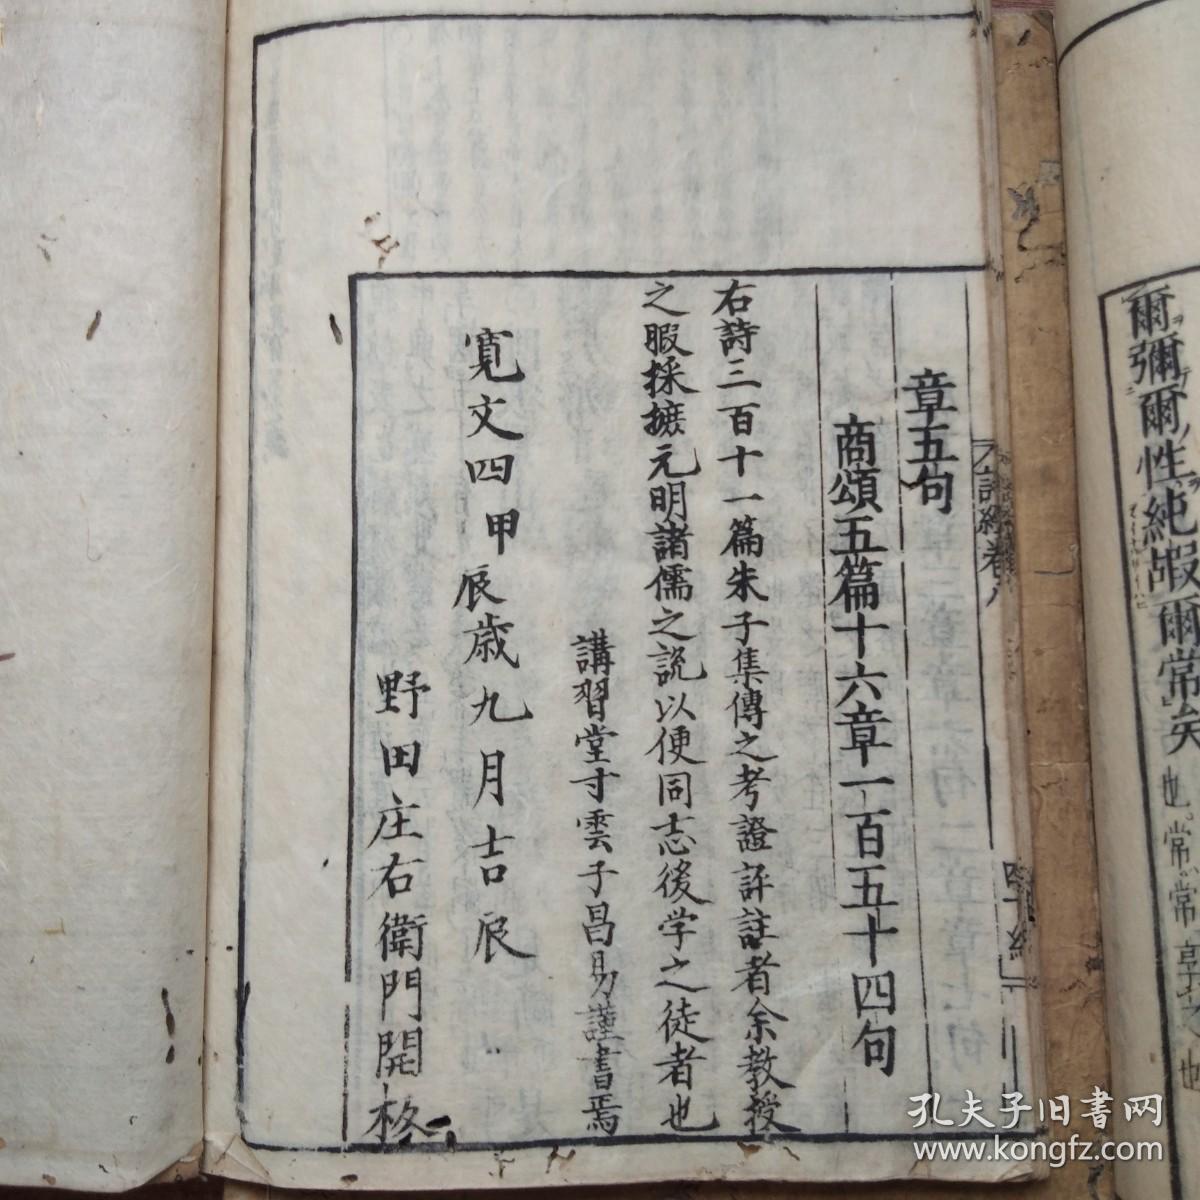 爾彌爾性純嘏爾常矣
也常常享之也
章五句
商頌五篇十六章一百五十四句
右詩三百十一篇朱子集傳之考證評註者余教授
之暇採摭元明諸儒之說以便同志後学之徒者也
講習堂寸雲子昌易謹書焉
寛文四甲辰歳九月吉辰
野田庄右衛門開板
詩經卷八
孔夫子旧書网
www.kongfz.com